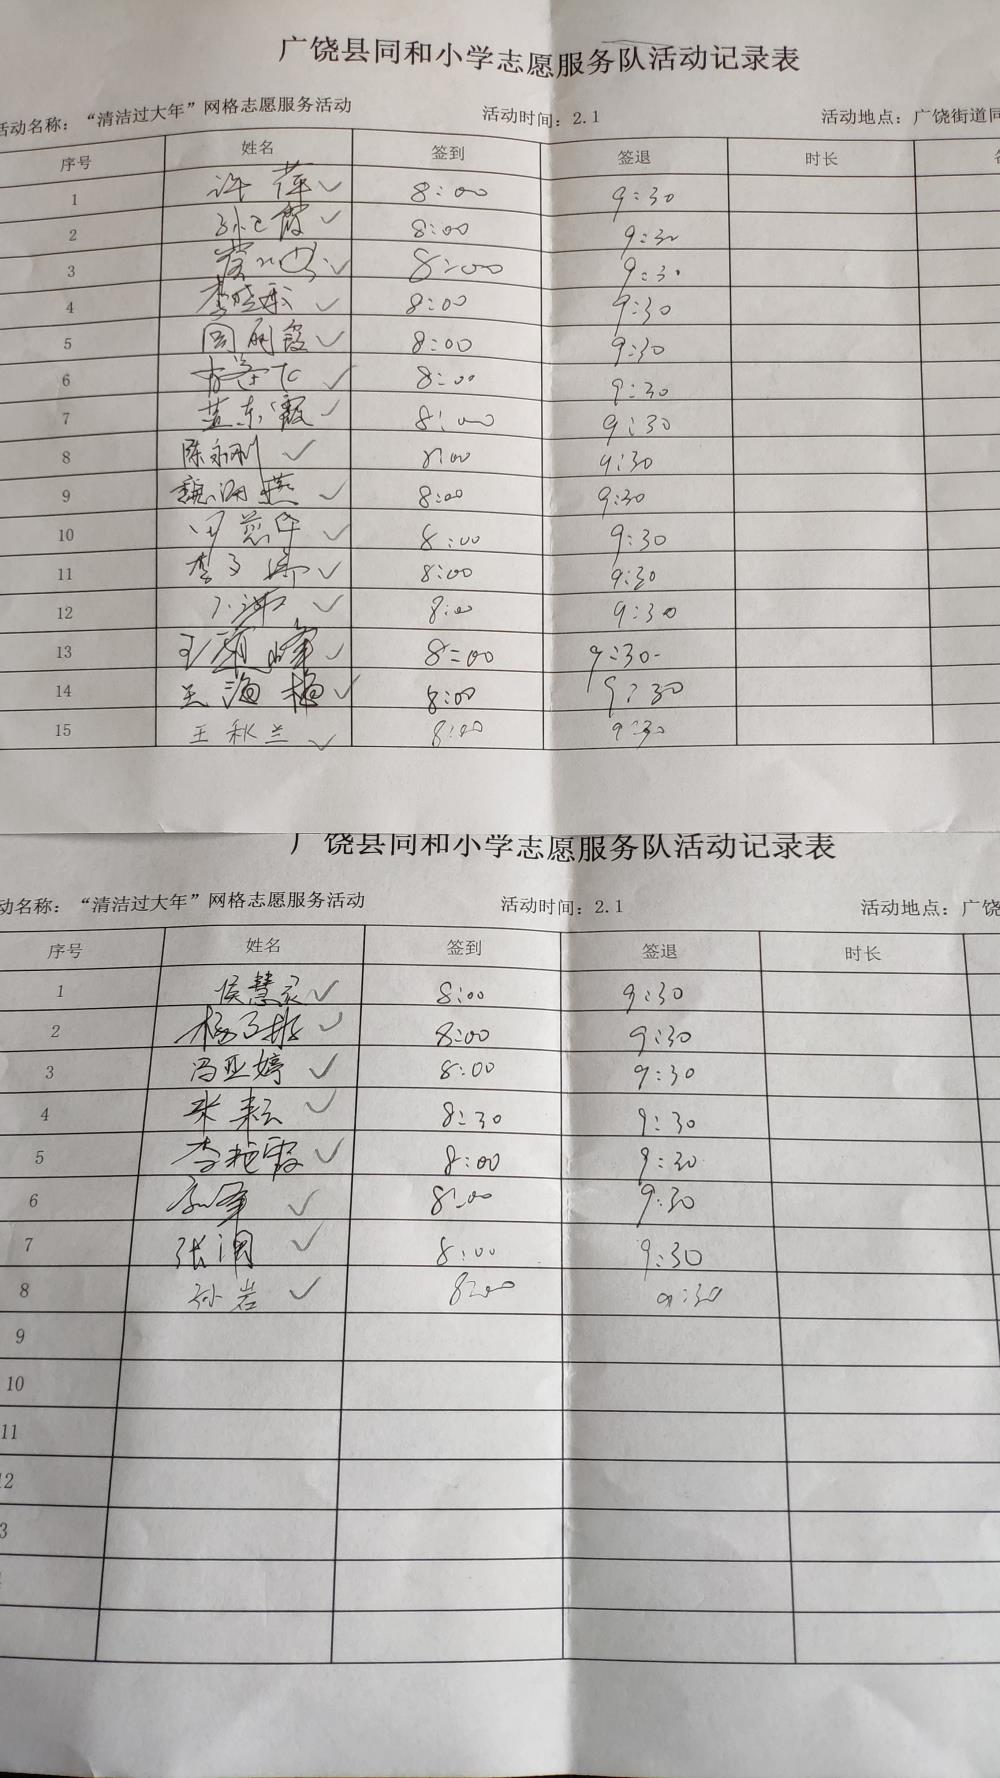 广饶县同和小学志愿服务队活动记录表
活动名称：“清洁过大年”网格志愿服务活动 活动时间：2.1 活动地点：广饶街道同
序号 姓名 签到 签退 时长
1 许萍✓ 8:00 9:30
2 ✓ 8:00 9:30
3 ✓ 8:00 9:30
4 ✓ 8:00 9:30
5 周丽霞✓ 8:00 9:30
6 ✓ 8:00 9:30
7 东霞✓ 8:00 9:30
8 陈永刚✓ 8:00 9:30
9 魏海燕✓ 8:00 9:30
10 ✓ 8:00 9:30
11 李 ✓ 8:00 9:30
12 ✓ 8:00 9:30
13 王 峰✓ 8:00 9:30
14 王海梅✓ 8:00 9:30
15 王秋兰✓ 8:00 9:30
广饶县同和小学志愿服务队活动记录表
动名称：“清洁过大年”网格志愿服务活动 活动时间：2.1 活动地点：广饶
序号 姓名 签到 签退 时长
1 侯慧 ✓ 8:00 9:30
2 杨 ✓ 8:00 9:30
3 冯亚婷✓ 8:00 9:30
4 张 ✓ 8:30 9:30
5 李艳霞✓ 8:00 9:30
6 ✓ 8:00 9:30
7 张润✓ 8:00 9:30
8 孙岩✓ 8:00 9:30
9
10
11
12
3